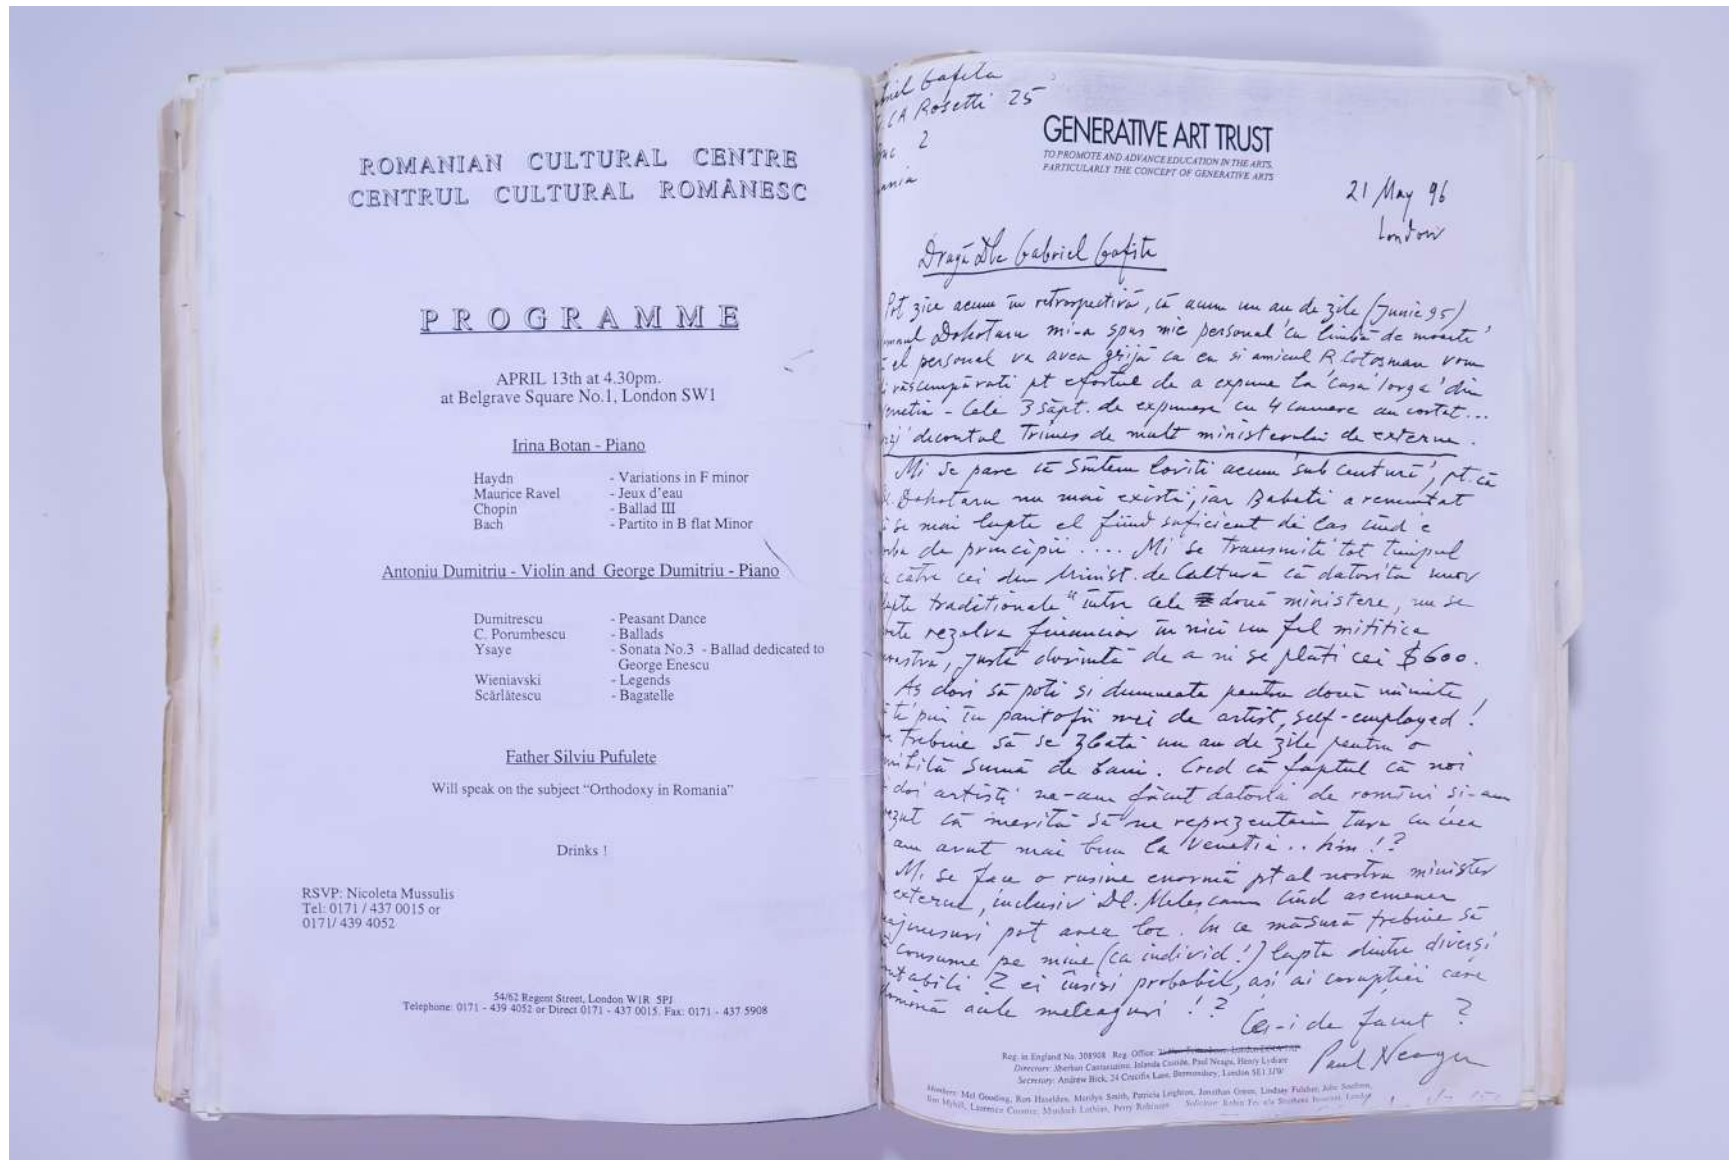 ROMANIAN CULTURAL CENTRE
CENTRUL CULTURAL ROMÂNESC
PROGRAMME
APRIL 13th at 4.30pm.
at Belgrave Square No.1, London SW1
Irina Botan - Piano
Haydn - Variations in F minor
Maurice Ravel - Jeux d'eau
Chopin - Ballad III
Bach - Partito in B flat Minor
Antoniu Dumitriu - Violin and George Dumitriu - Piano
Dumitrescu - Peasant Dance
C. Porumbescu - Ballads
Ysaye - Sonata No.3 - Ballad dedicated to
George Enescu
Wieniavski - Legends
Scărlătescu - Bagatelle
Father Silviu Pufulete
Will speak on the subject "Orthodoxy in Romania"
Drinks !
RSVP: Nicoleta Mussulis
Tel: 0171 / 437 0015 or
0171/ 439 4052
54/62 Regent Street, London W1R 5PJ
Telephone: 0171 - 439 4052 or Direct 0171 - 437 0015. Fax: 0171 - 437 5908
Gafita
CA Rosetti 25
2
GENERATIVE ART TRUST
TO PROMOTE AND ADVANCE EDUCATION IN THE ARTS,
PARTICULARLY THE CONCEPT OF GENERATIVE ARTS
21 May 96
London
Dragă Dle Gabriel Gafita
Pot zice acum în retrospectivă, că acum un an de zile (Junie 95)
Dohotaru mi-a spus mie personal 'cu limbă de moarte'
el personal va avea grijă ca eu si amicul R. Cotosman vom
răscumpărati pt efortul de a expune la 'casa Iorga' din
- Cele 3 săpt. de expunere cu 4 camere au costat...
decontul trimes de mult ministerului de externe.
Mi se pare că sîntem loviti acum 'sub centură', pt. că
Dohotaru nu mai există, iar Babeti a renuntat
se mai lupte el fiind suficient de las cînd e
de principii .... Mi se transmite tot timpul
către cei din Minist. de Cultură că datorită unor
traditionale" între cele două ministere, nu se
rezolva financiar în nici un fel mititica
justă dorintă de a ni se plăti cei $600.
As dori să poti si dumneata pentru două minute
pui în pantofii mei de artist, self-employed!
trebuie să se zbată un an de zile pentru o
sumă de bani. Cred că faptul că noi
doi artisti ne-am făcut datoria de români si-am
că merită să ne reprezentăm tara cu ceea
am avut mai bun la Venetia .. him !?
Mi se face o rusine enormă pt al nostru minister
externe, inclusiv Dl. Melescanu cînd asemenea
pot avea loc. In ce măsură trebuie să
consume pe mine (ca individ!) lupta dintre diversi
? ei însisi probabil, asi ai coruptiei care
acele meleaguri !?
Ce-i de făcut ?
Paul Neagu
Reg. in England No. 308908 Reg. Office:
Directors: Sherban Cantacuzino, Iolanda Costide, Paul Neagu, Henry Lydiate
Secretary: Andrew Bick, 24 Crucifix Lane, Bermondsey, London SE1 3JW
Members: Mel Gooding, Ron Haselden, Marilyn Smith, Patricia Leighton, Jonathan Green, Lindsey Fulcher, John Southern,